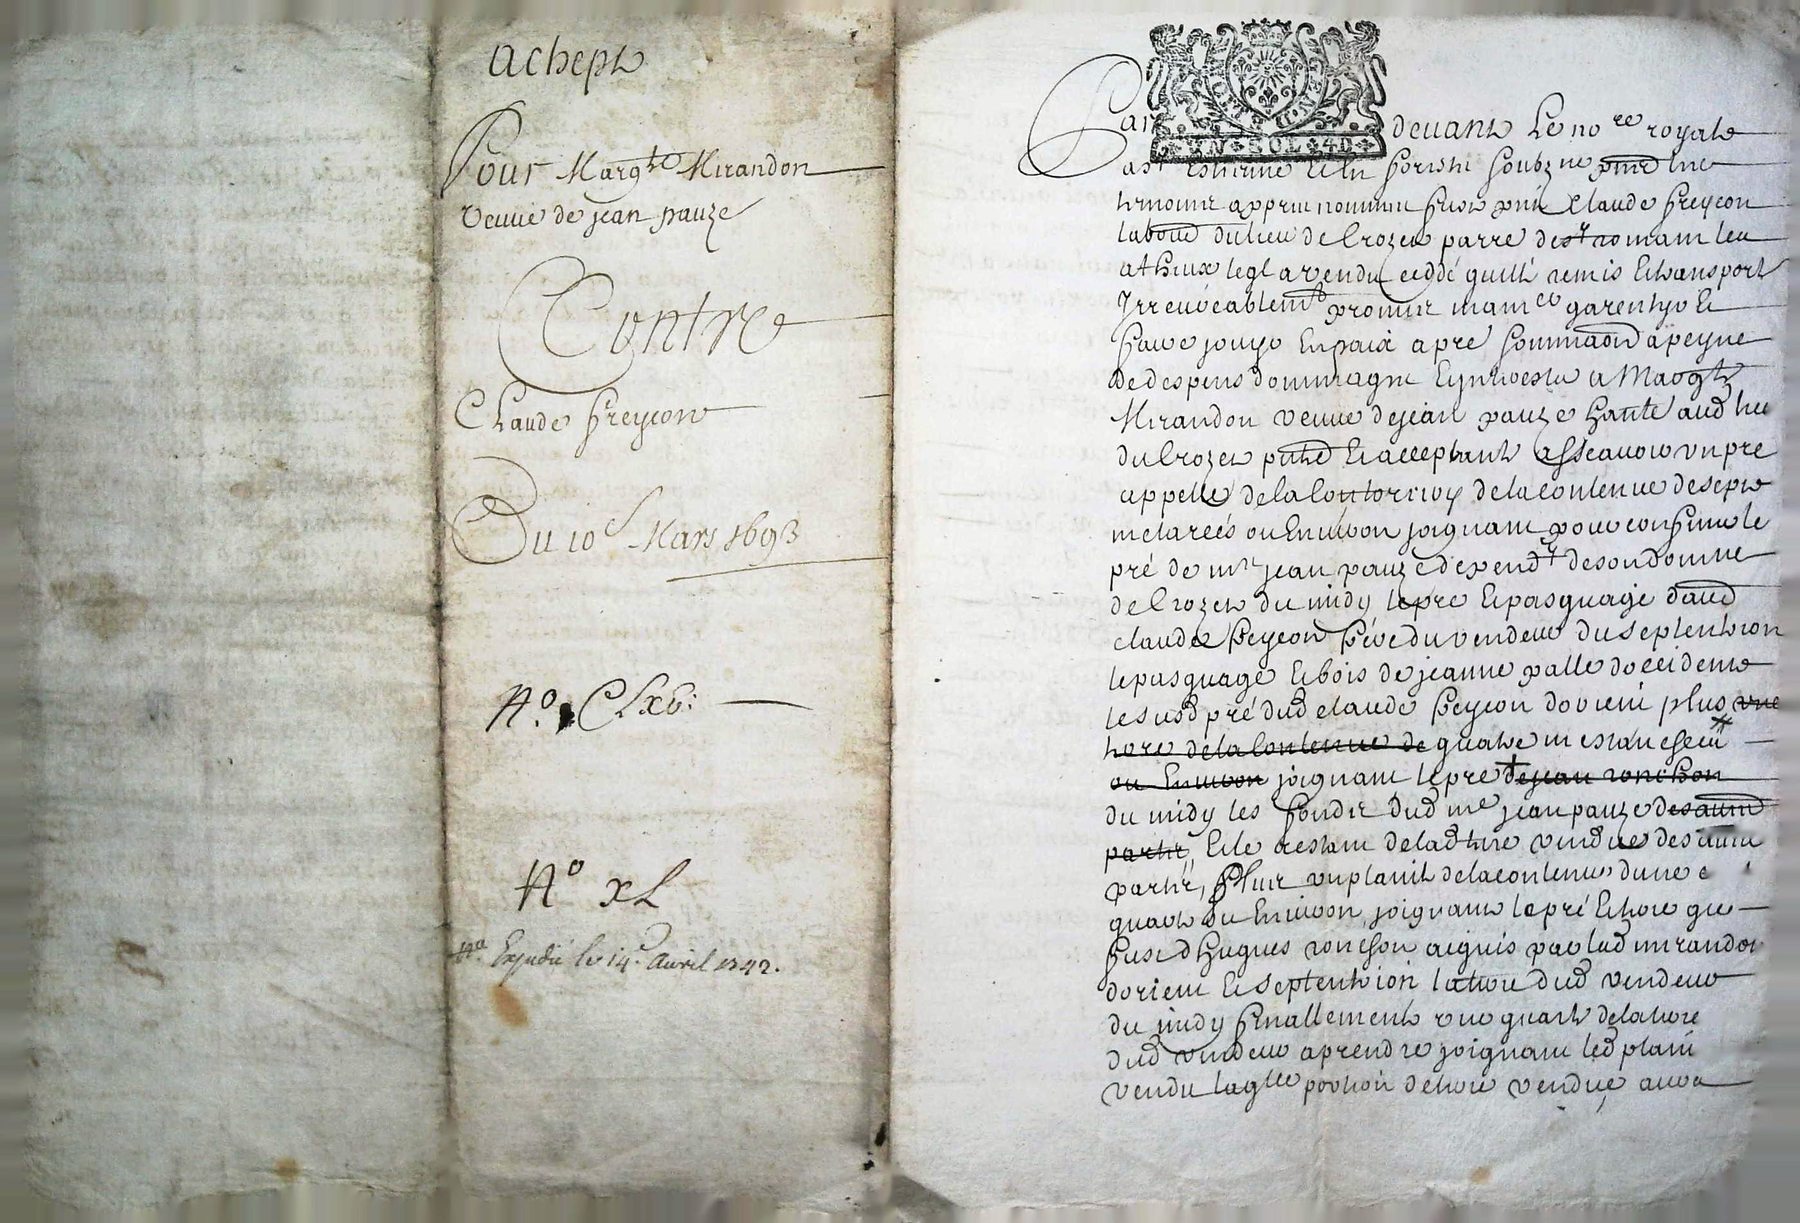 achept
Pour Marg.te Mirandon
veuve de jean pauze
Contre
Claude freycon
Du 10e Mars 1693
N.o CLXV:
N.o XL
Expedié le 14. Avril 1742.
GEN D
UN SOL 4D
Par devant Le no.re royale
a st Estienne
Claude freycon
du lieu de Crozet parre de st romain leu
atheux leql a vendu ceddé quitté remis et transporté
Irrevocablemt promir garentyr et
faire jouyr En paix apre sommaon a peyne
de despens dommagne a Margte
Mirandon veuve de jean pauze aud lieu
du Crozet et acceptant assçavoir un pre
appellé de la de la contenue de sept
metarées ou Environ joignant pour confins le
pré de mre jean pauze depend.t de son domne
de Crozet du midy le pre et pasquage daud
claude freycon frère du vendeur du septentrion
le pasquage et bois de jeanne palle doccident
le susd pré dud claude freycon dorient plus une
terre de la Contenue de quatre
ou Environ joignant le pre de jean ronchon
du midy les fondz dud me jean pauze
partir, Et le restant de lad terre vendue
partir, plus un plant de la contenue dune
quart ou Environ joignant le pré Et terre que
fust dhugues ronchon aquis par lad mirandon
dorient et septentrion la terre dud vendeur
du midy finallement une quart de la terre
dud vendeur a prendre joignant led plant
vendu laqlle portion de terre vendue